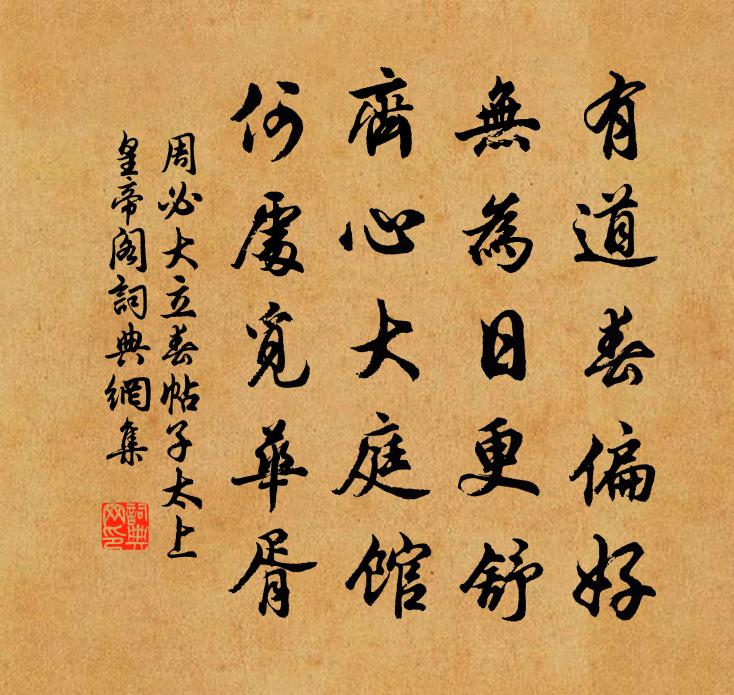 有道春偏好
無為日更舒
齊心大庭館
何處覓華胥
周必大立春帖子太上
皇帝閣詞典網集
詞典
网印